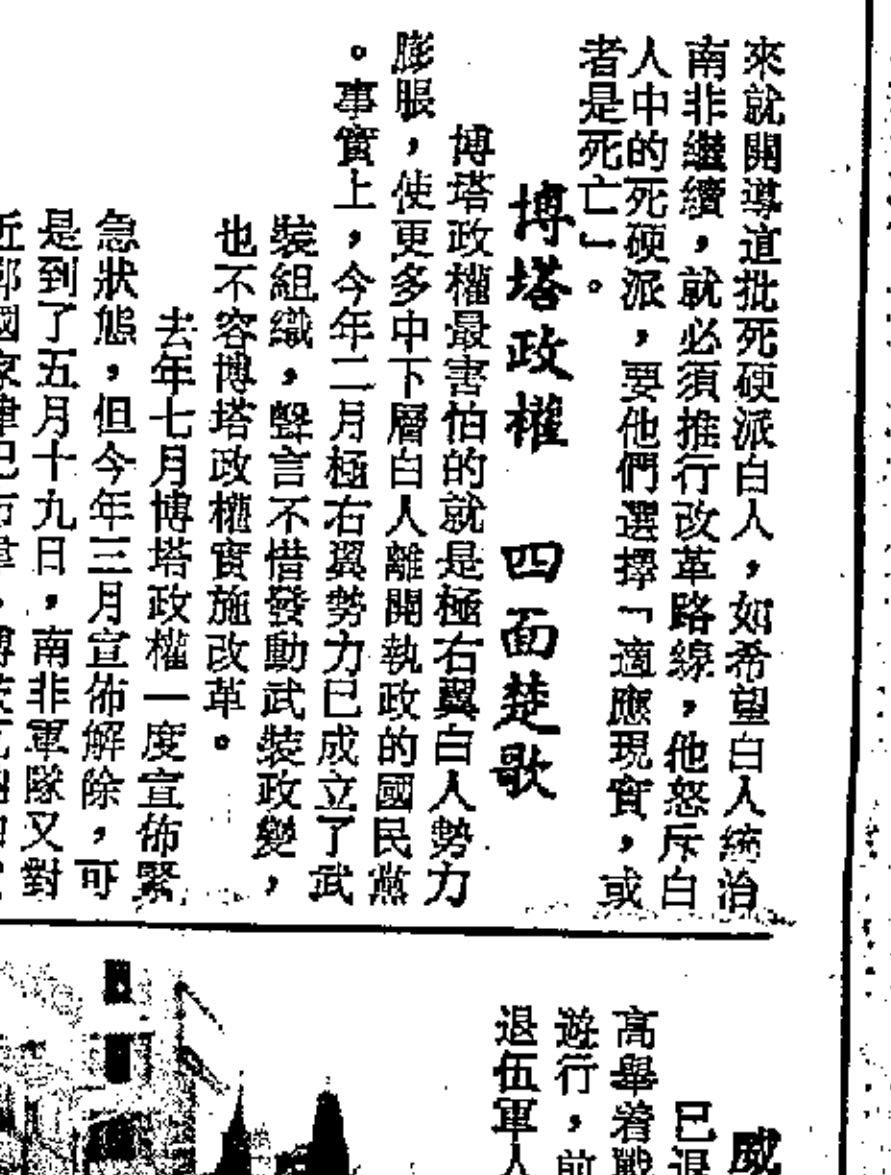 來就開導這批死硬派白人，如希望白人統治
南非繼續，就必須推行改革路線，他怒斥白
人中的死硬派，要他們選擇「適應現實，或
者是死亡」。
博塔政權　四面楚歌
博塔政權最害怕的就是極右翼白人勢力
膨脹，使更多中下層白人離開執政的國民黨
。事實上，今年二月極右翼勢力已成立了武
裝組織，聲言不惜發動武裝政變，
也不容博塔政權實施改革。
去年七月博塔政權一度宣佈緊
急狀態，但今年三月宣佈解除，可
是到了五月十九日，南非軍隊又對
近鄰國家津巴布韋、博茨瓦納和
威
已退
高舉着戰
遊行，前
退伍軍人